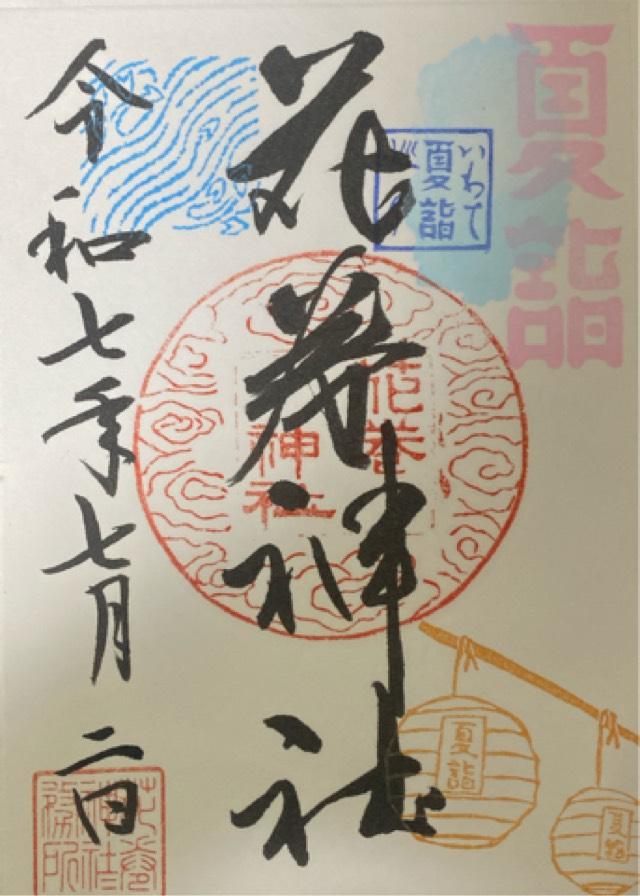 夏詣
いわて
夏詣
花巻神社
花巻
神社
令和七年七月二日
花巻
神社
務所
夏詣
夏詣